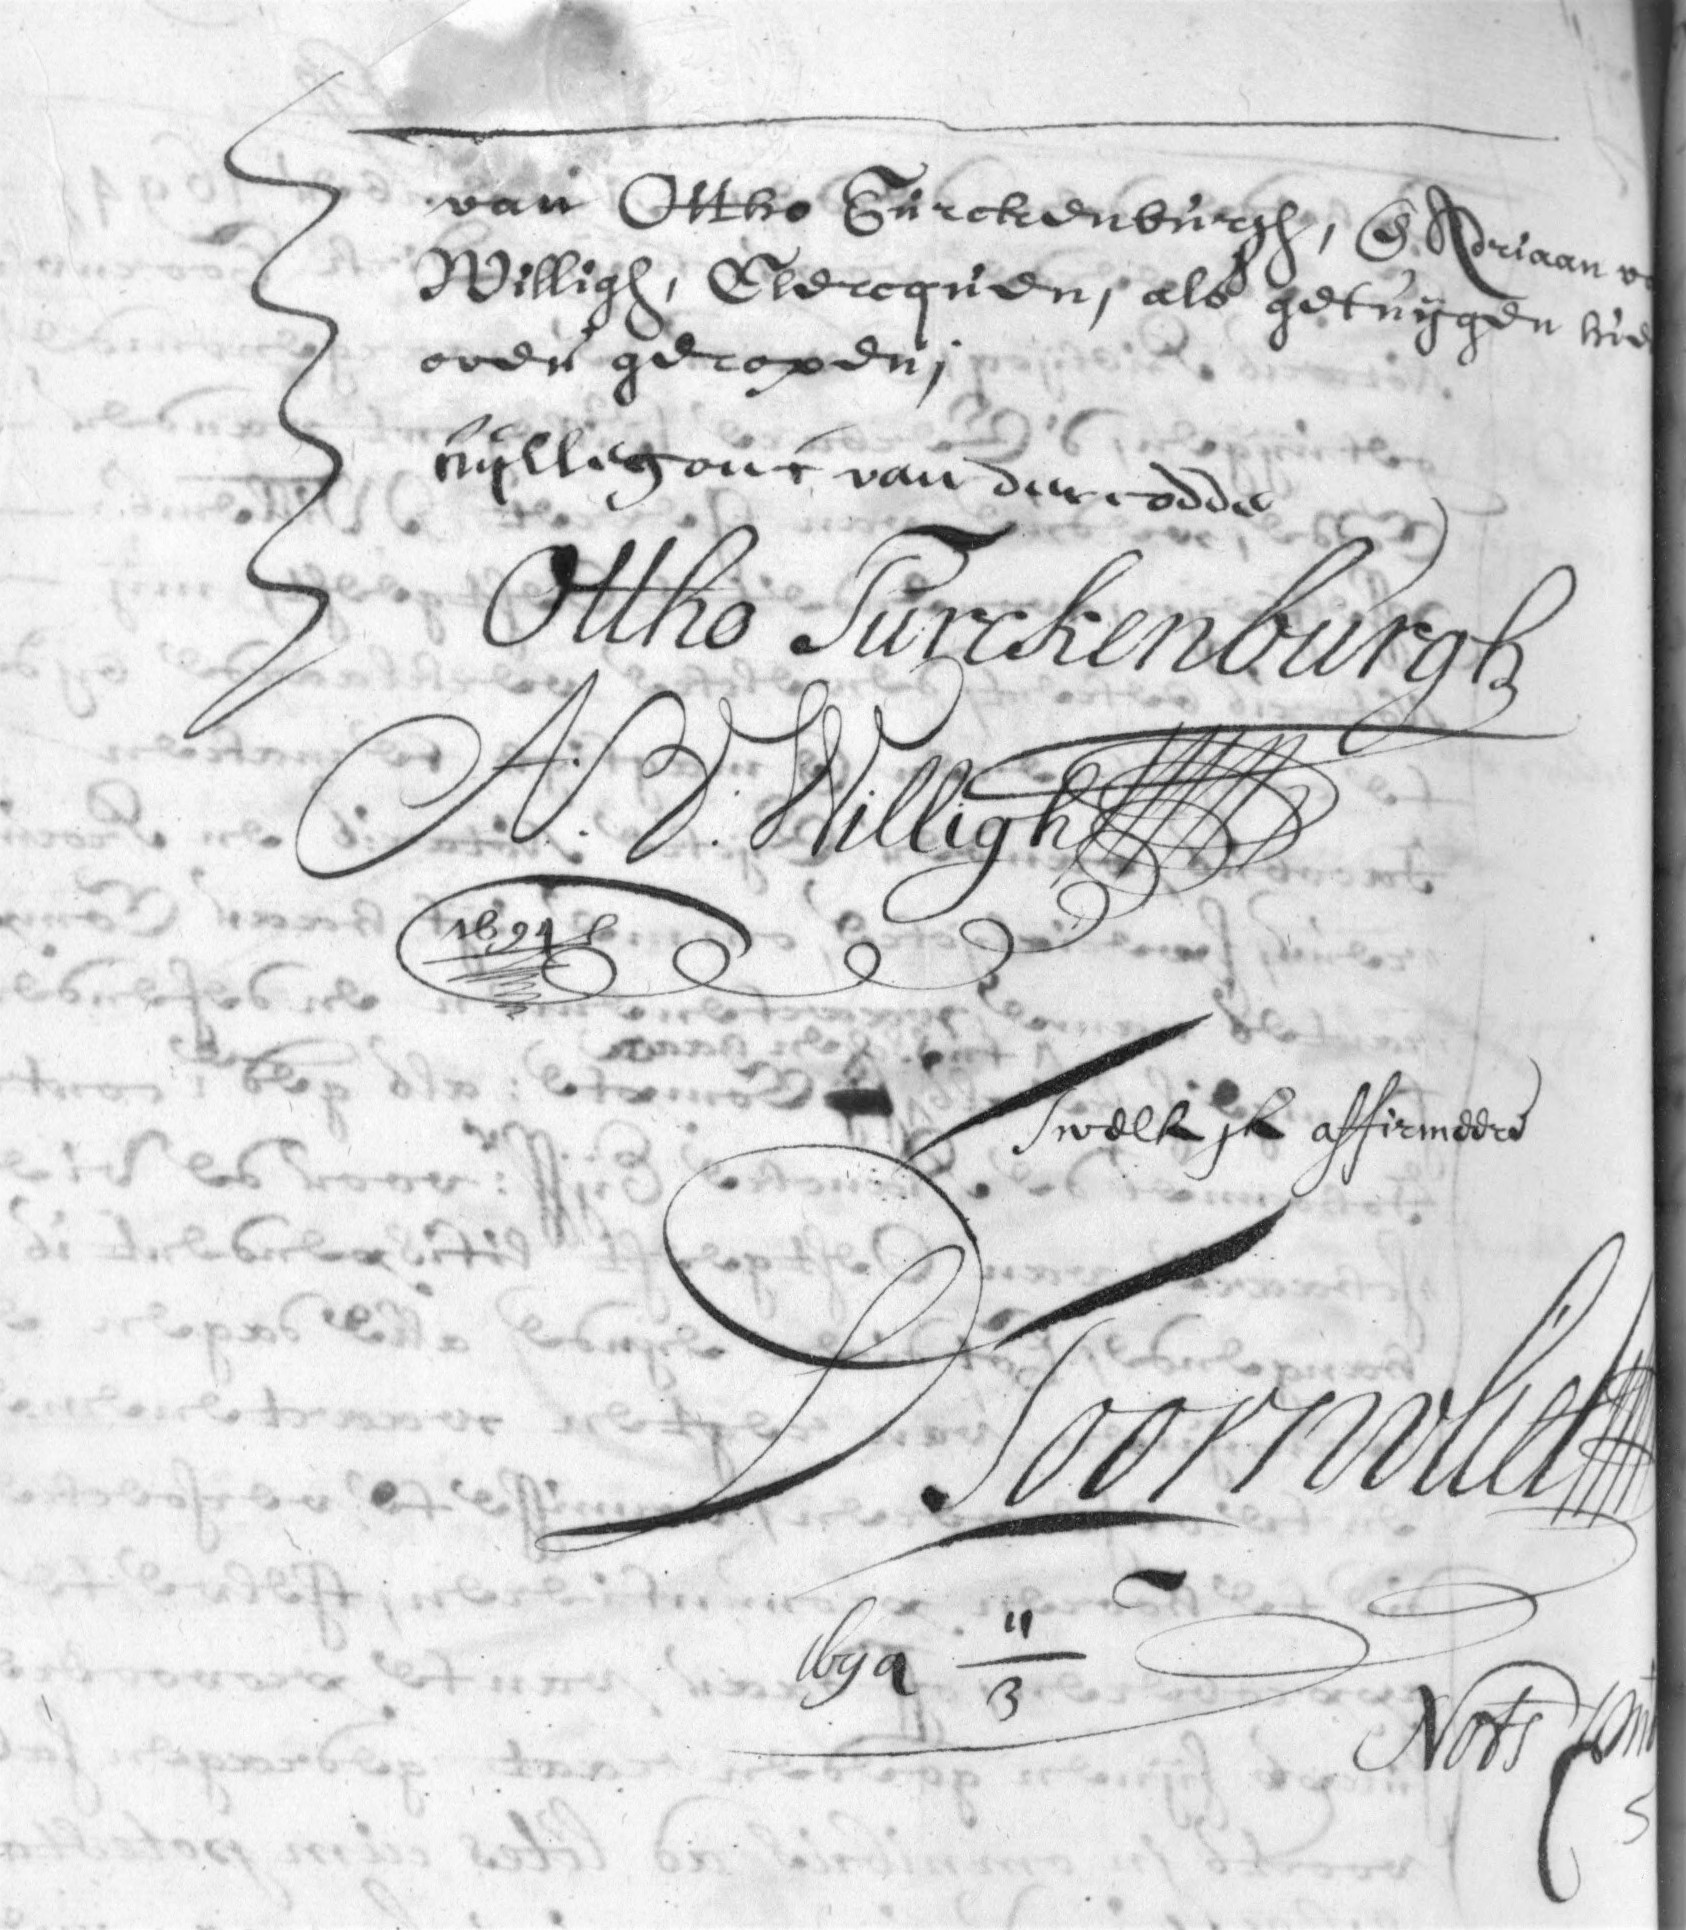 van Ottho Turckenburgh, & Adriaan
Willigh, Clercquen, als getuygen
over geropen;
hyllegont van der codde
Ottho Turckenburgh
A. V. Willigh
1694
Twelk jk affirmeere
D Doornvliet
11
3
Nots